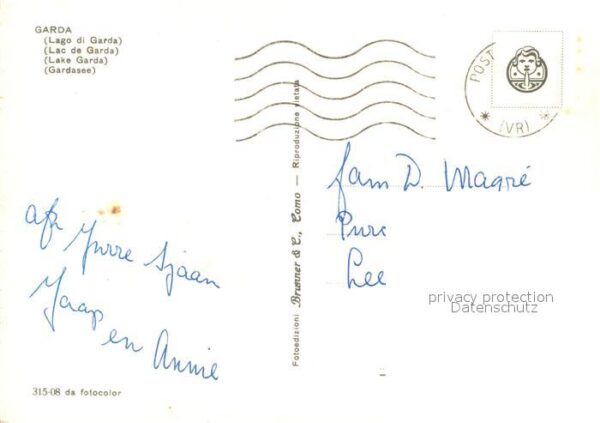 GARDA
(Lago di Garda)
(Lac de Garda)
(Lake Garda)
(Gardasee)
POST
(VR)
Fotoedizioni Brunner & C., Como — Riproduzione vietata
fam D. Magré
Lee
privacy protection
Datenschutz
Sjaan
Jaap
en Annie
315-08 da fotocolor